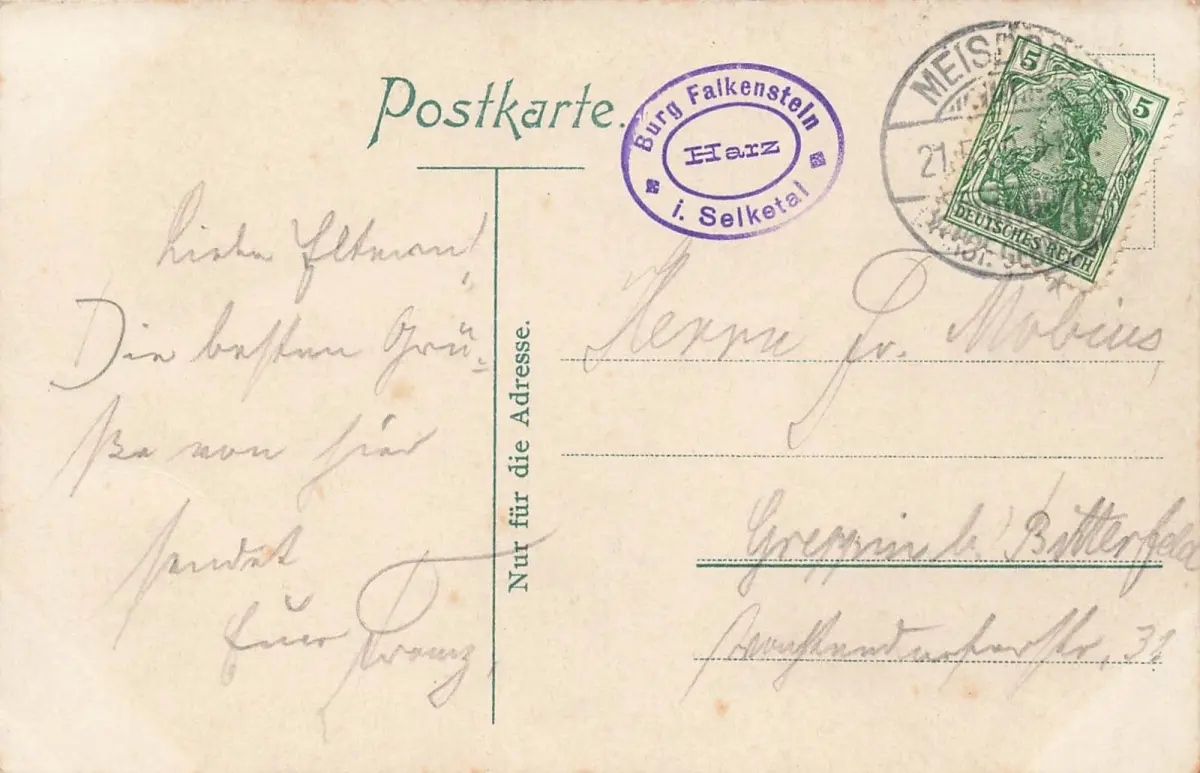 Postkarte.
Burg Falkenstein
Harz
i. Selketal
MEISD
21.
5 5
DEUTSCHES REICH
Nur für die Adresse.
Liebe Eltern!
Die besten Grü-
ße von hier
sendet
Euer Franz.
Herrn Fr. Möbius,
Greppin b. Bitterfeld
32